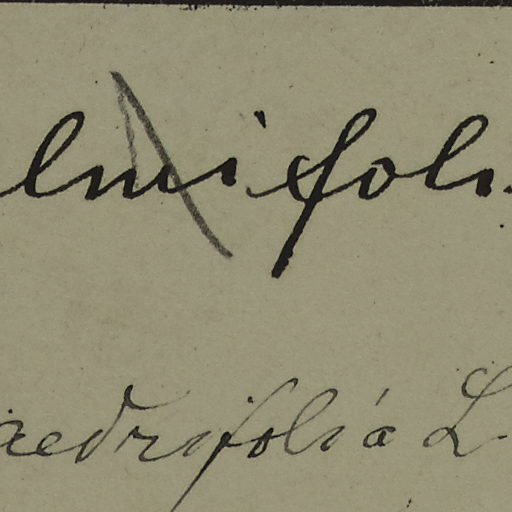 lmifoli
aedrifolia L